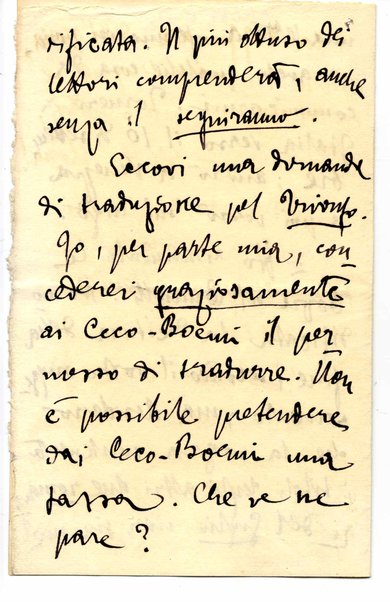 rificata. Il più ottuso dei
lettori comprenderà, anche
senza il seguiranno.
Eccovi una domanda
di traduzione pel Trionfo.
Io, per parte mia, con
cederei graziosamente
ai Ceco-Boemi il per
messo di tradurre. Non
è possibile pretendere
dai Ceco-Boemi una
tassa. Che ve ne
pare?